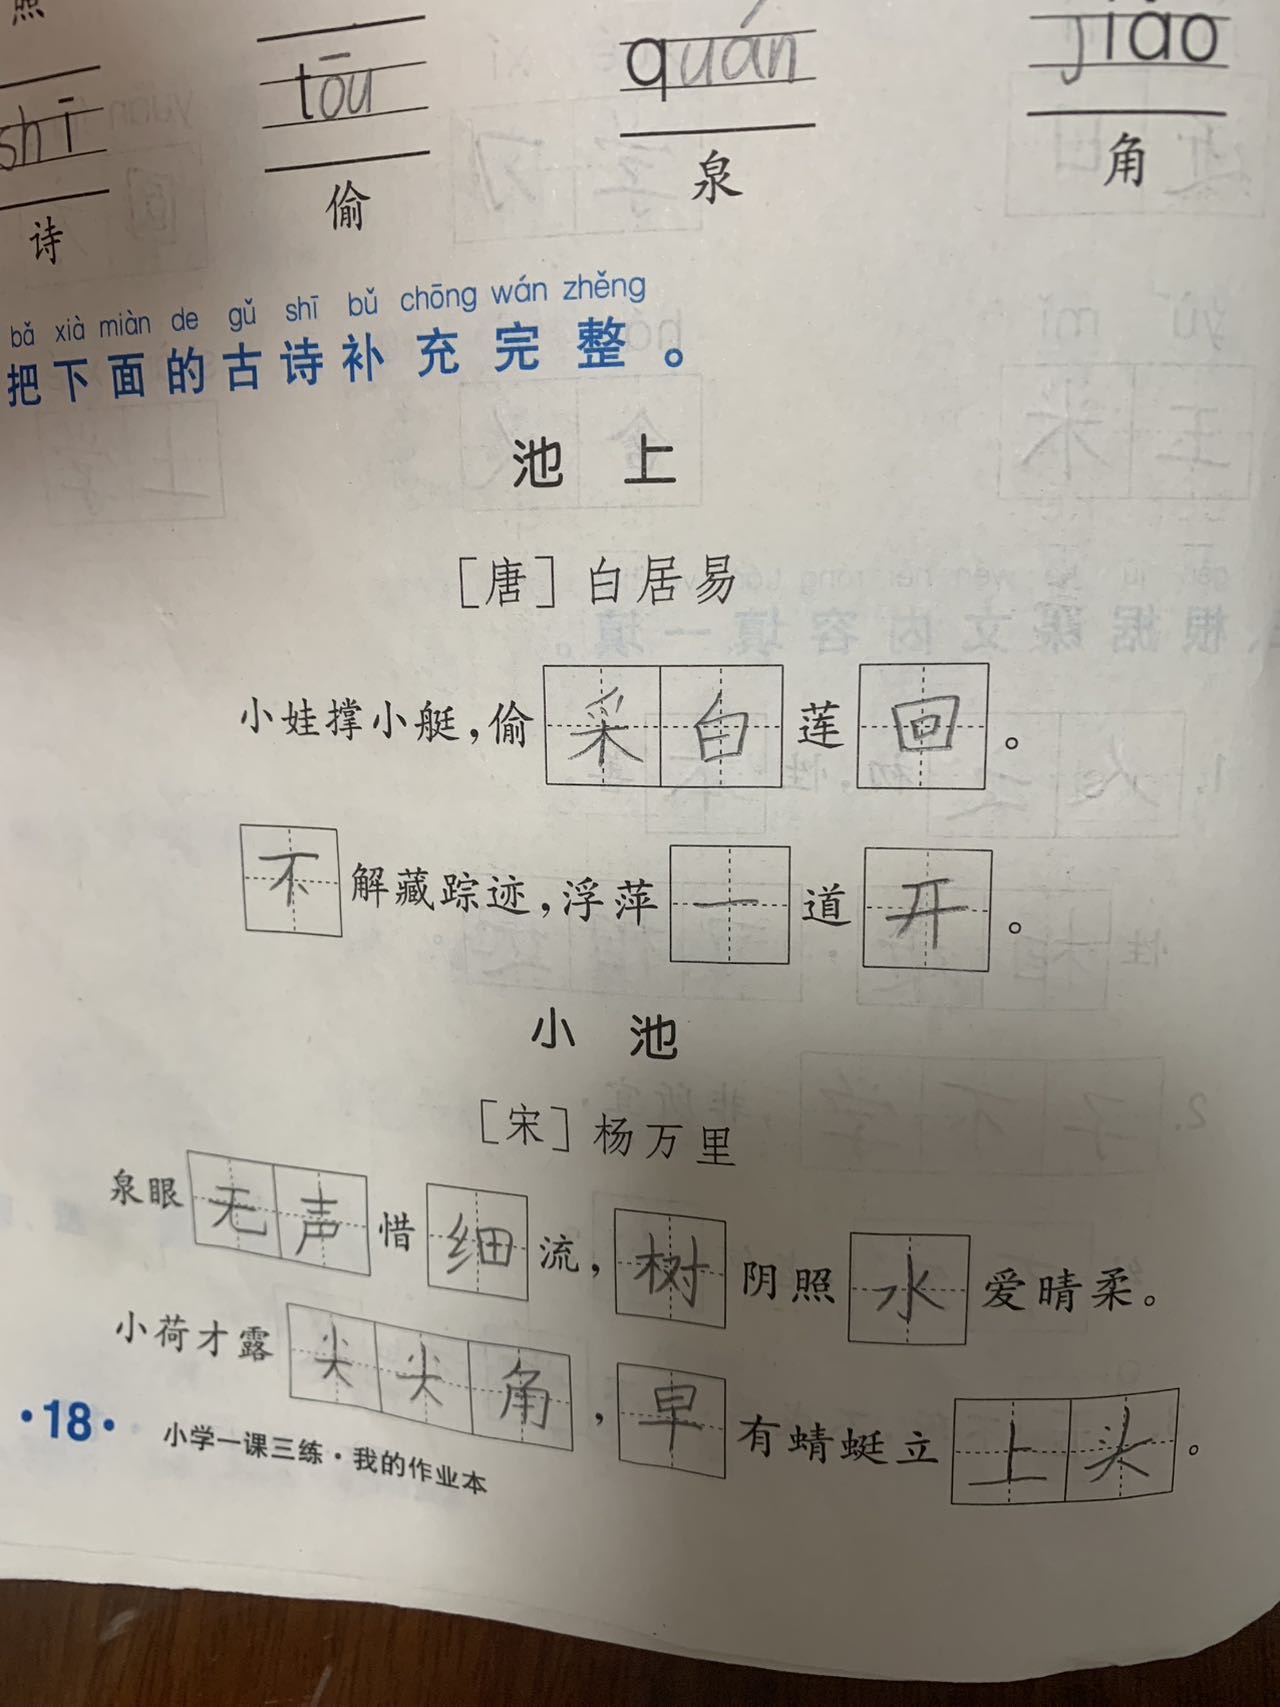 照
shī tōu quán jiǎo
诗 偷 泉 角
bǎ xià miàn de gǔ shī bǔ chōng wán zhěng
把下面的古诗补充完整。
池 上
[唐] 白居易
小娃撑小艇，偷采白莲回。
不解藏踪迹，浮萍一道开。
小 池
[宋] 杨万里
泉眼无声惜细流，树阴照水爱晴柔。
小荷才露尖尖角，早有蜻蜓立上头。
·18· 小学一课三练·我的作业本